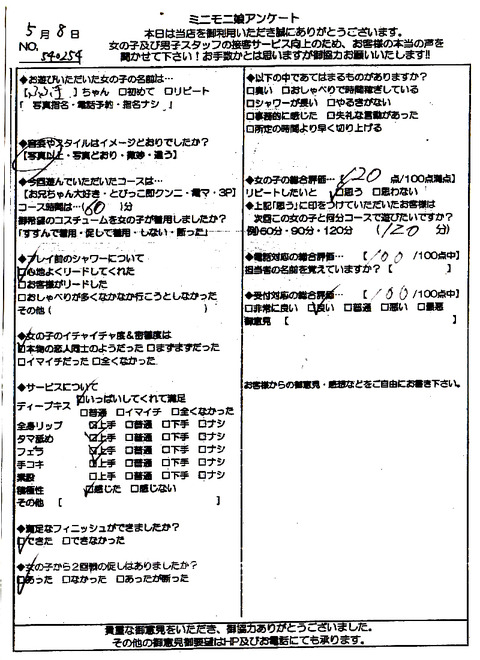 ミニモニ娘アンケート
5月8日
本日は当店を御利用いただき誠にありがとうございます。
NO. 540254
女の子及び男子スタッフの接客サービス向上のため、お客様の本当の声を
聞かせて下さい!お手数かとは思いますが御協力お願いいたします!!
◆お遊びいただいた女の子の名前は…
ちゃん □初めて □リピート
「 写真指名・電話予約・指名ナシ 」
◆容姿やスタイルはイメージとおりでしたか?
【写真以上・写真どおり・微妙・違う】
◆今回遊んでいただいたコースは…
【お兄ちゃん大好き・とびっこ即クンニ・電マ・3P】
コース時間は…( 60 )分
御希望のコスチュームを女の子が着用しましたか?
「すすんで着用・促して着用・しない・断った」
◆プレイ前のシャワーについて
□心地よくリードしてくれた
□お客様がリードした
□おしゃべりが多くなかなか行こうとしなかった
その他 ( )
◆女の子のイチャイチャ度&密着度は
□本物の恋人同士のようだった □まずまずだった
□イマイチだった □全くなかった
◆サービスについて
ディープキス □いっぱいしてくれて満足
□普通 □イマイチ □全くなかった
全身リップ □上手 □普通 □下手 □ナシ
タマ舐め □上手 □普通 □下手 □ナシ
フェラ □上手 □普通 □下手 □ナシ
手コキ □上手 □普通 □下手 □ナシ
素股 □上手 □普通 □下手 □ナシ
積極性 □感じた □感じない
その他 [ ]
◆満足なフィニッシュができましたか?
□できた □できなかった
◆女の子から2回戦の促しはありましたか?
□あった □なかった □あったが断った
◆以下の中であてはまるものがありますか?
□臭い □おしゃべりで時間稼ぎしている
□シャワーが長い □やるきがない
□事務的に感じた □失礼な言動があった
□所定の時間より早く切り上げる
◆女の子の総合評価… 120 点/100点満点
リピートしたいと □思う □思わない
◆上記「思う」に印をつけていただいたお客様は
次回この女の子と何分コースで遊びたいですか?
例)60分・90分・120分 ( 120 分)
◆電話対応の総合評価… 【 100 /100点中】
担当者の名前を覚えていますか?【 】
◆受付対応の総合評価… 【 100 /100点中】
□非常に良い □良い □普通 □悪い □最悪
御意見 [ ]
お客様からの御意見・感想などをご自由にお書き下さい。
貴重な御意見をいただき、御協力ありがとうございました。
その他の御意見御要望はHP及びお電話にても承ります。